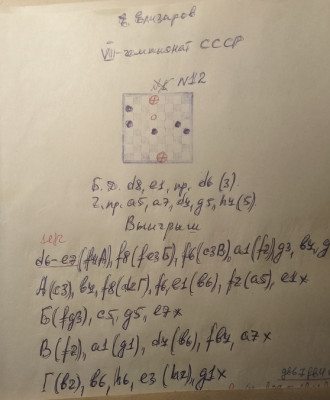 Е. Елизаров
VIII-чемпионат СССР
N12
Б. Д. d8, e1, пр. d6 (3)
Ч. пр. a5, a7, d4, g5, h4 (5)
Выигрыш
d6-e7 (f4A), f8 (fe3Б), f6 (c3В), a1 (f2) g3, b4, g
A (c3), b4, f8 (de Г), f6, e1 (b6), f2 (a5), e1x
Б (fg3), c5, g5, e7x
В (f2), a1 (g1), d4 (b6), fb4, a7x
Г (b2), b6, h6, e3 (h2), g1x